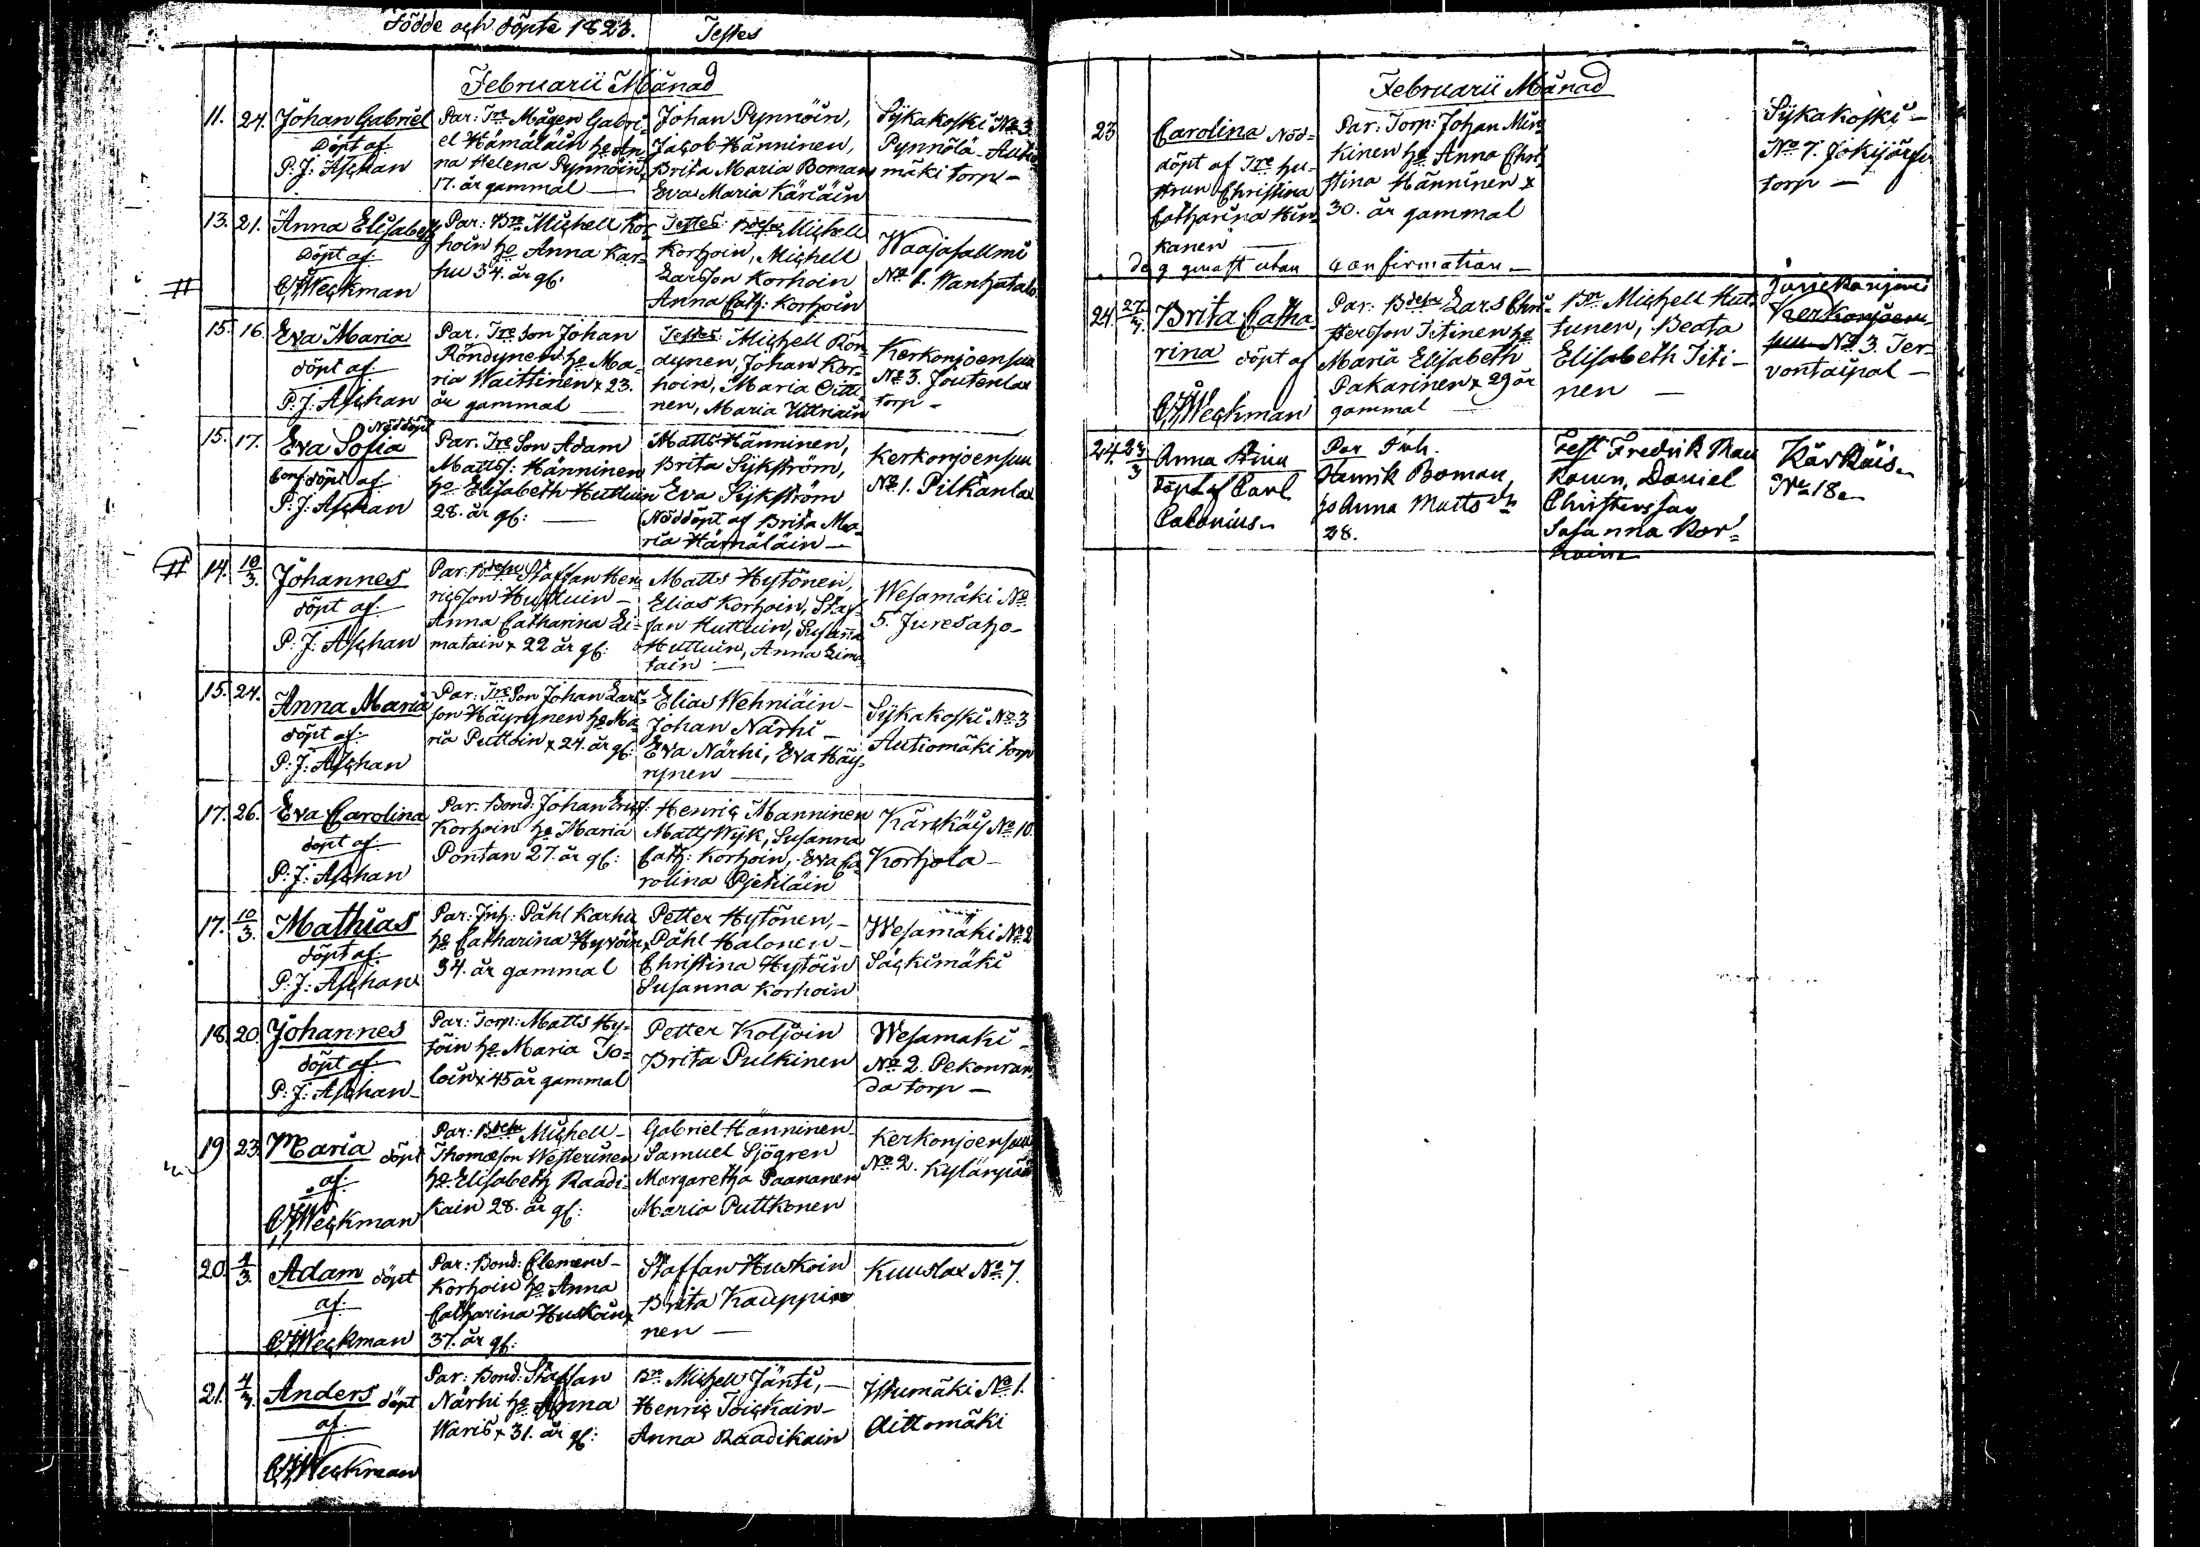 Födde och döpte 1823. Testes
Februarii Månad
11. 24. Johan Gabriel
döpt af
P: J: Aschan
Par: Tre Mågen Gabri-
el Hämäläin ho An
na Helena Pynnöin
17. år gammal
Johan Pynnöin,
Jacob Hänninen,
Brita Maria Boman
Eva Maria Käriäin
Sykäkoski No 3
Pynnölä-Autio
mäki torp
13. 21. Anna Elisabeth
döpt af
Weckman
Par: Michell Kor-
hoin ho Anna Kar-
hu 34. år gl.
Testes: Michell
Korhoin, Michell
Larsson Korhoin
Anna Cath: Korhoin
Waajasallmi
No 1. Wanhatalo
15. 16. Eva Maria
döpt af
P: J: Aschan
Par. Tre Son Johan
Röndynen ho Ma-
ria Waittinen x 23.
år gammal
Testes: Michell Rön
dynen, Johan Kor-
hoin, Maria Oitti
nen, Maria
Kerkonjoensuu
No 3. Joutenlax
torp
15. 17. Nöddöpt
Eva Sofia
Conf. döpt af
P: J: Aschan
Par. Tre Son Adam
Mattss: Hänninen
ho Elisabeth Huttuin
28. år gl:
Matts Hänninen,
Brita Sijkström,
Eva Sijkström
Nöddöpt af Brita Ma-
ria Hämäläin
Kerkonjoensuu
No 1. Pilkänlax
14. 10/3. Johannes
döpt af
P: J: Aschan
Par: Staffan Hen
ricsson Huttuin
Anna Catharina Li-
matain x 22 år gl:
Matts Hytönen,
Elias Korhoin, Staf-
fan Huttuin, Susanna
Huttuin, Anna Lima
tain
Wesamäki No
5. Juresaho
15. 24. Anna Maria
döpt af
P: J: Aschan
Par: Tre Son Johan Lars-
son Häyrynen ho Ma
ria Puttoin x 24. år gl:
Elias Wehniäin
Johan Närhi
Eva Närhi, Eva Häy-
rynen
Sykäkoski No 3
Autiomäki torp
17. 26. Eva Carolina
döpt af
P: J: Aschan
Par: Bond: Johan
Korhoin ho Maria
Pontan 27. år gl:
Henric Manninen
Matts Wijk, Susanna
Cath: Korhoin, Eva Ca
rolina Pjetiläin
Kärckäis No 10.
Korhola
17. 10/3. Mathias
döpt af
P: J: Aschan
Par: Inh: Påhl Karhu
ho Catharina Hyvöin
34. år gammal
Petter Hytönen,
Påhl Halonen
Christina Hytöin
Susanna Korhoin
Wesamäki No 2
Säckimäki
18. 20. Johannes
döpt af
P: J: Aschan
Par: Torp: Matts Hy-
töin ho Maria To-
loin x 45 år gammal
Petter Koljoin
Brita Pulkinen
Wesamäki
No 2. Pekonran
da torp
19. 23. Maria döpt
af
Weckman
Par: Michell
Thomasson Westerinen
ho Elisabeth Raadi-
kain 28. år gl:
Gabriel Hänninen
Samuel Sjögren
Margaretha Paananen
Maria Puttkonen
Kerkonjoensuu
No 2. Kylänpää
20. 4/3. Adam döpt
af
Weckman
Par: Bond: Clemens
Korhoin ho Anna
Catharina Huskoin x
37. år gl:
Staffan Huskoin
Brita Kauppi
nen
Kuuslax No 7.
21. 4/3. Anders döpt
af
Weckman
Par: Bond: Staffan
Närhi ho Anna
Waris x 31. år gl:
Bn Michell Jänti,
Henric Toickain
Anna Raadikain
Istumäki No 1.
Aittomäki
Februarii Månad
23 Carolina Nöd-
döpt af Tre hu-
strun Christina
Catharina Hin-
kanen
utan confirmation
Par: Torp: Johan Min
kinen ho Anna Chri
stina Hänninen x
30. år gammal
Sykäkoski
No 7. Jokijärfvi
torp
24 27/3. Brita Catha
rina döpt af
Weckman
Par: Lars Chri-
stersson Titinen ho
Maria Elisabeth
Pakarinen x 29 år
gammal
Bn Michell Hut-
tunen, Beata
Elisabeth Titi-
nen
Kerkonjoen
suu No 3. Ter-
vontaipal
24. 23/3 Anna Stina
döpt af Carl
Calonius
Par Inh.
Henrik Boman
ho Anna Mattsdr
28.
Test Fredrik Mau
konen, Daniel
Christersson
Susanna Kor-
hoinen
Kärkäis
No 18